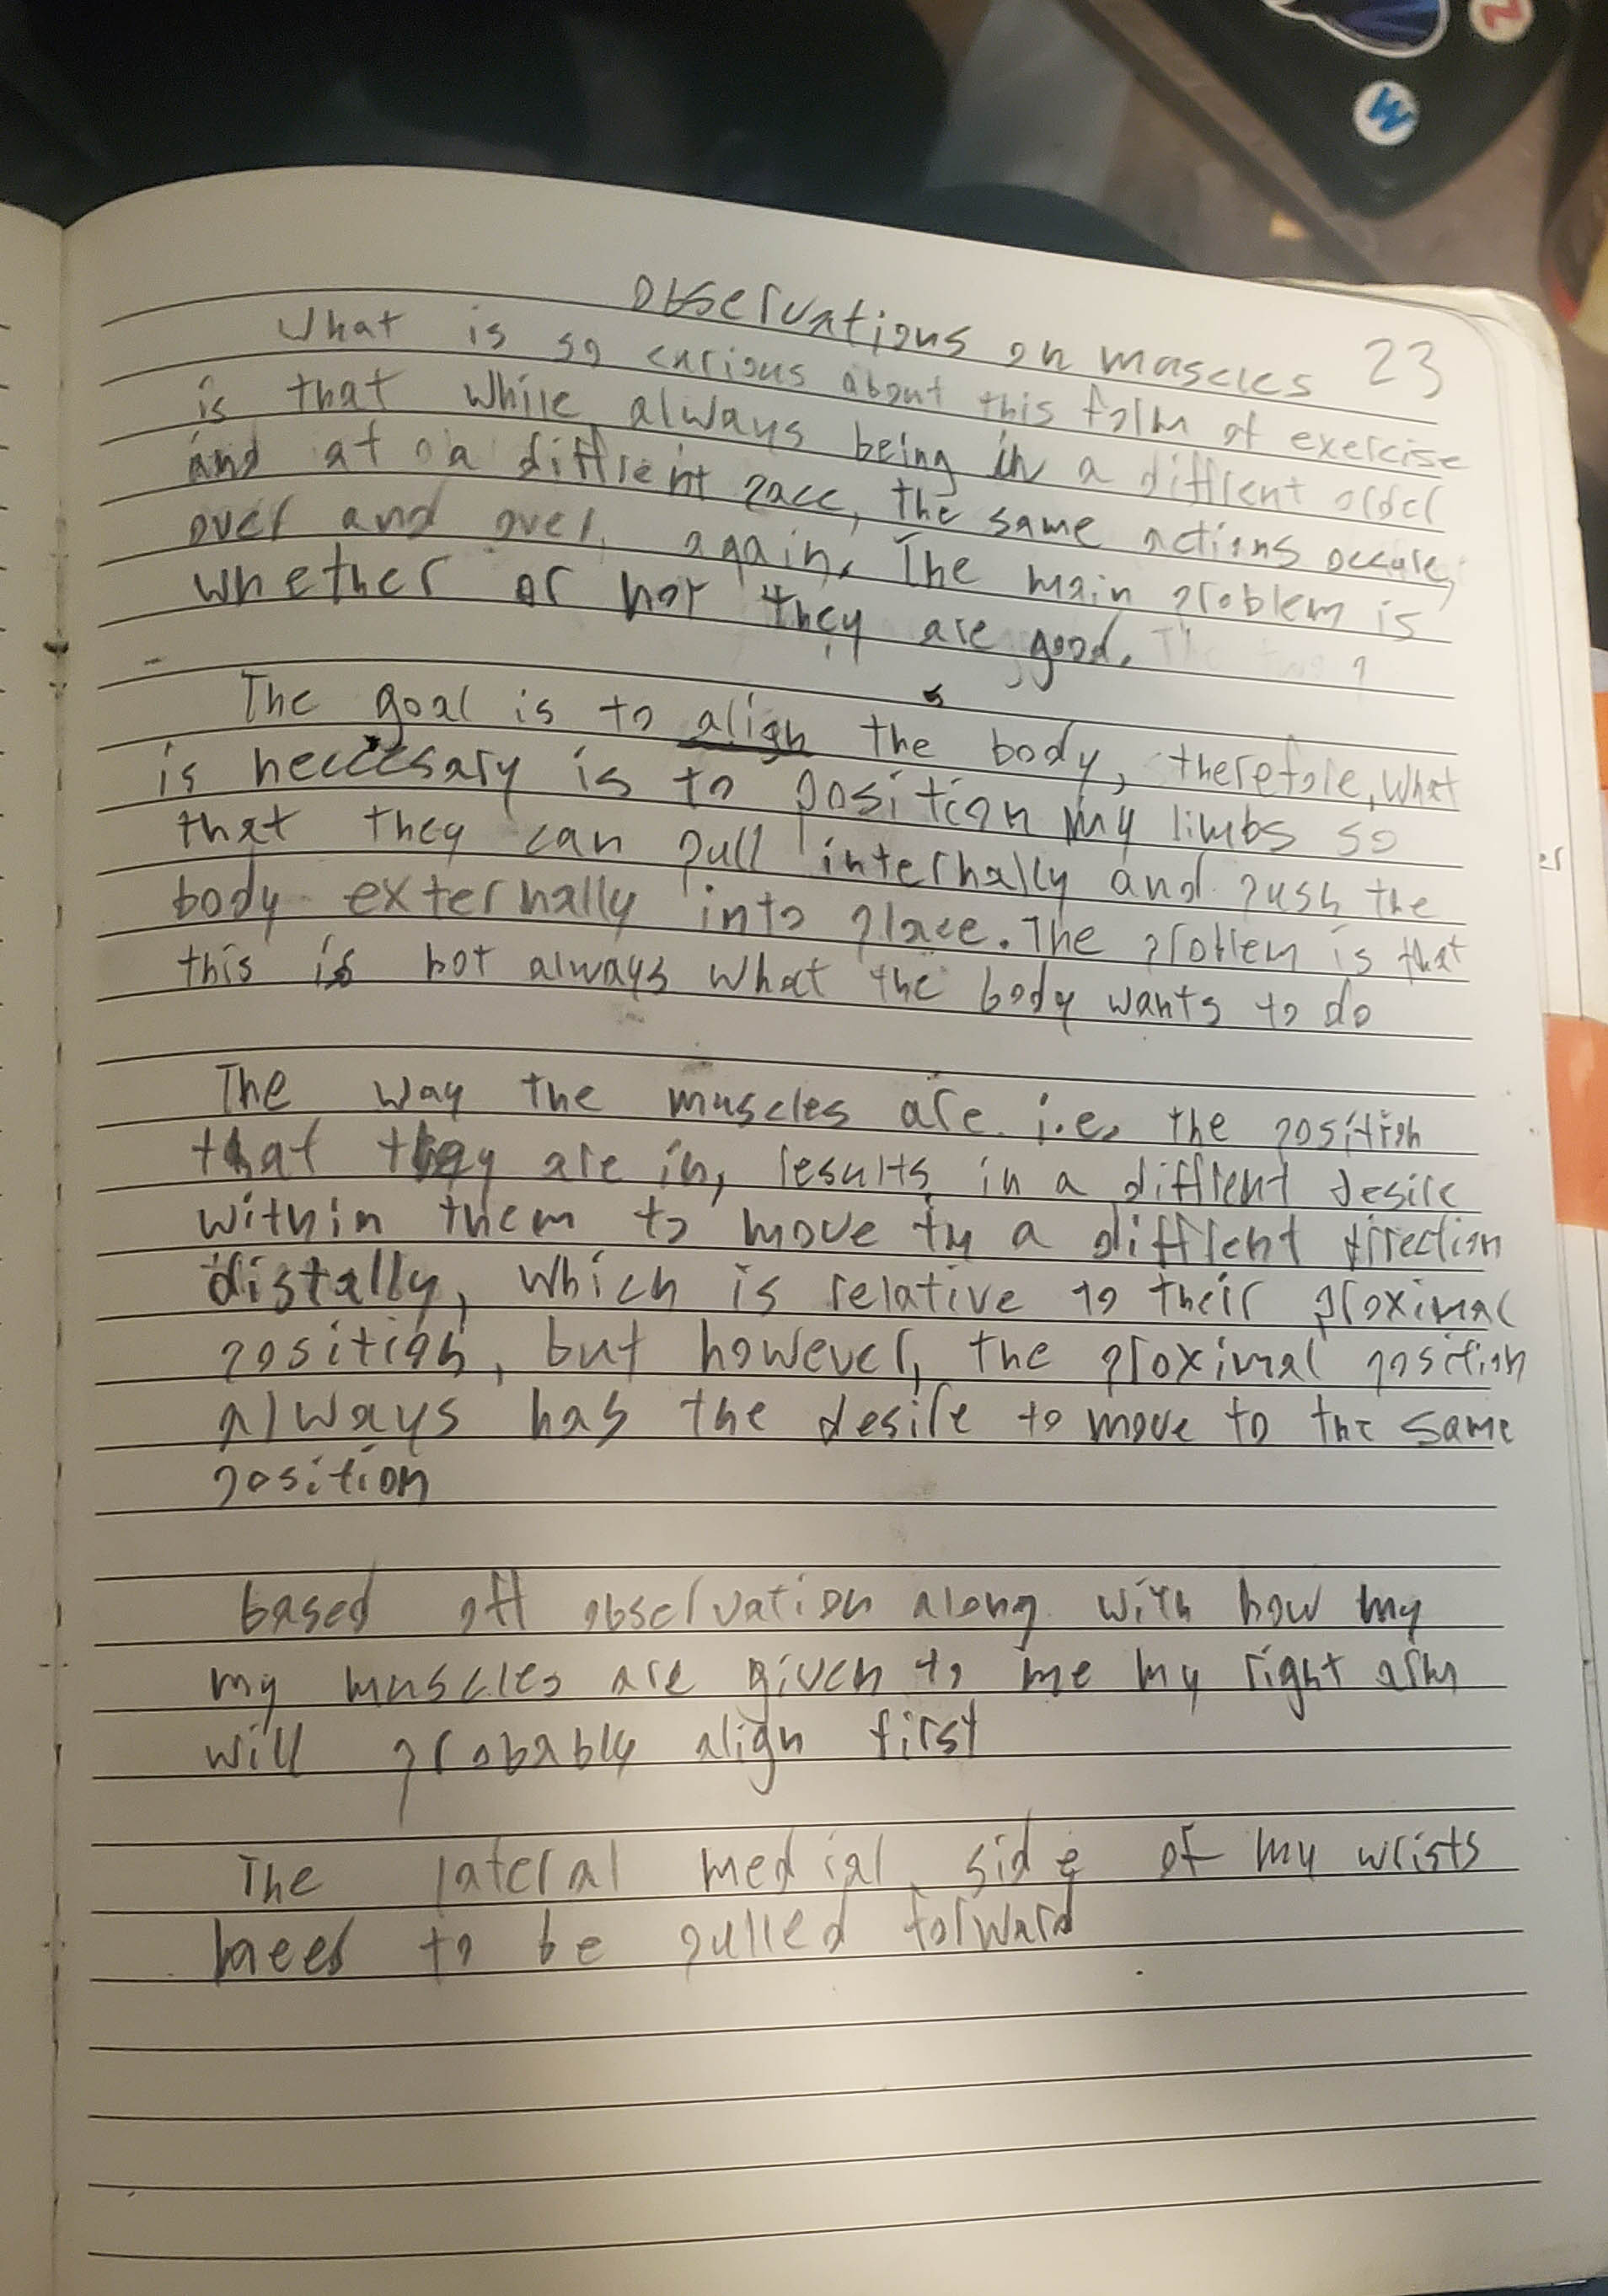 Observations on muscles 23
What is so curious about this form of exercise
is that while always being in a diffrent order
and at a diffrent pace, the same actions occure,
over and over again. The main problem is
whether or not they are good.
The goal is to align the body, therefore, what
is neccesary is to position my limbs so
that they can pull internally and push the
body externally into place. The problem is that
this is not always what the body wants to do
The way the muscles are i.e. the position
that they are in, results in a diffrent desire
within them to move in a diffrent direction
distally, which is relative to their proximal
position, but however, the proximal position
always has the desire to move to the same
position
based off observation along with how my
my muscles are given to me my right arm
will probably align first
The lateral medial side of my wrists
need to be pulled forward
W